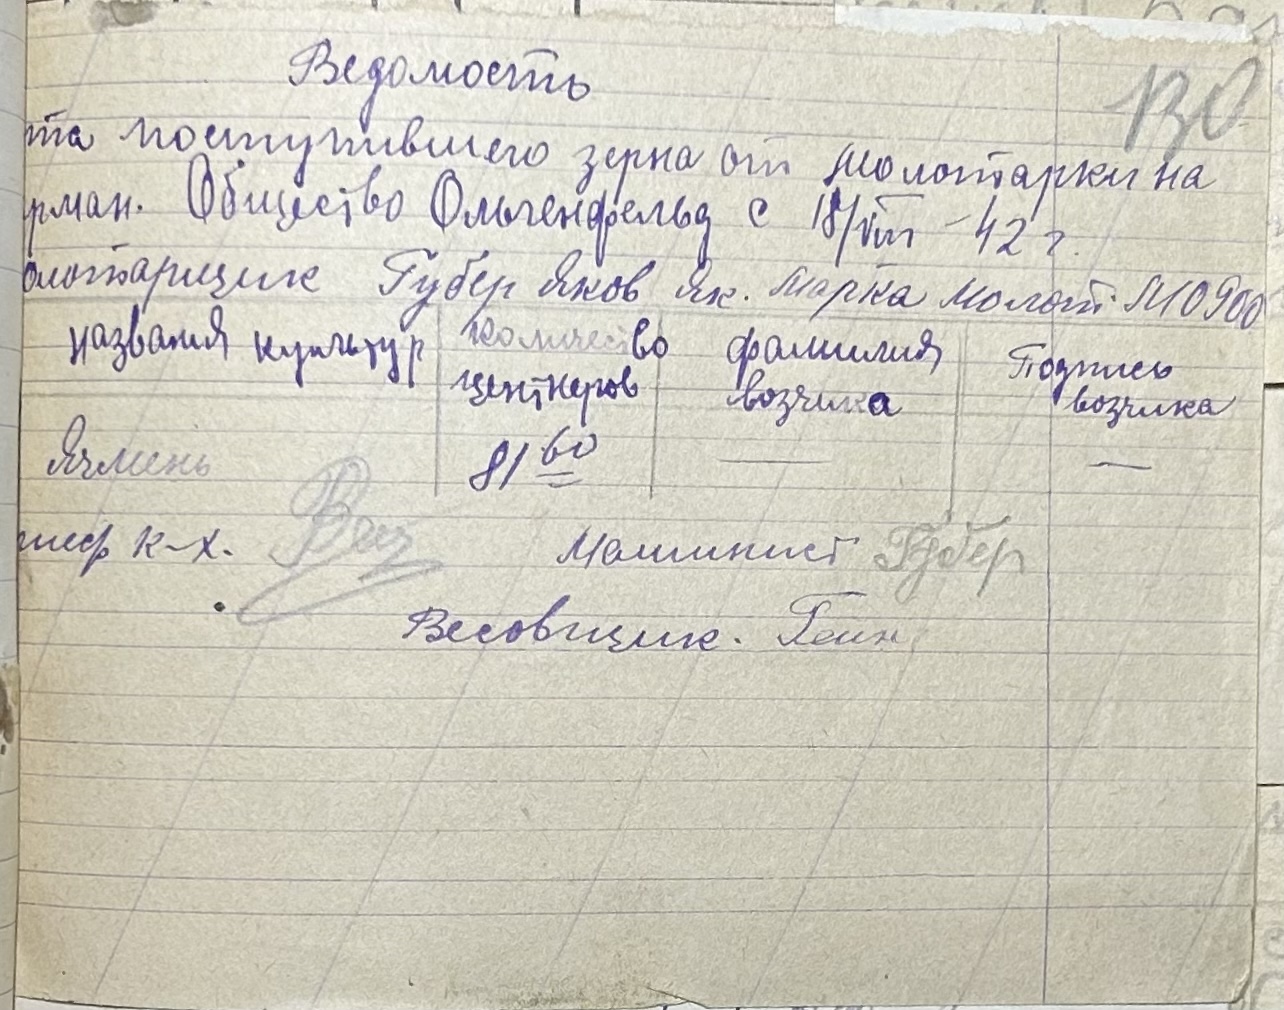 Ведомость
130
та поступившего зерна от молотарки на
рман. Общество Ольгенфельд с 18/VIII - 42 г.
олотарщик Губер Яков Як. марка молот. МО 900
названия культур количество центнеров фамилия возчика Подпись возчика
Ячмень 81 60 — —
шеф к-х. Машинист Губер
Весовщик. Геин